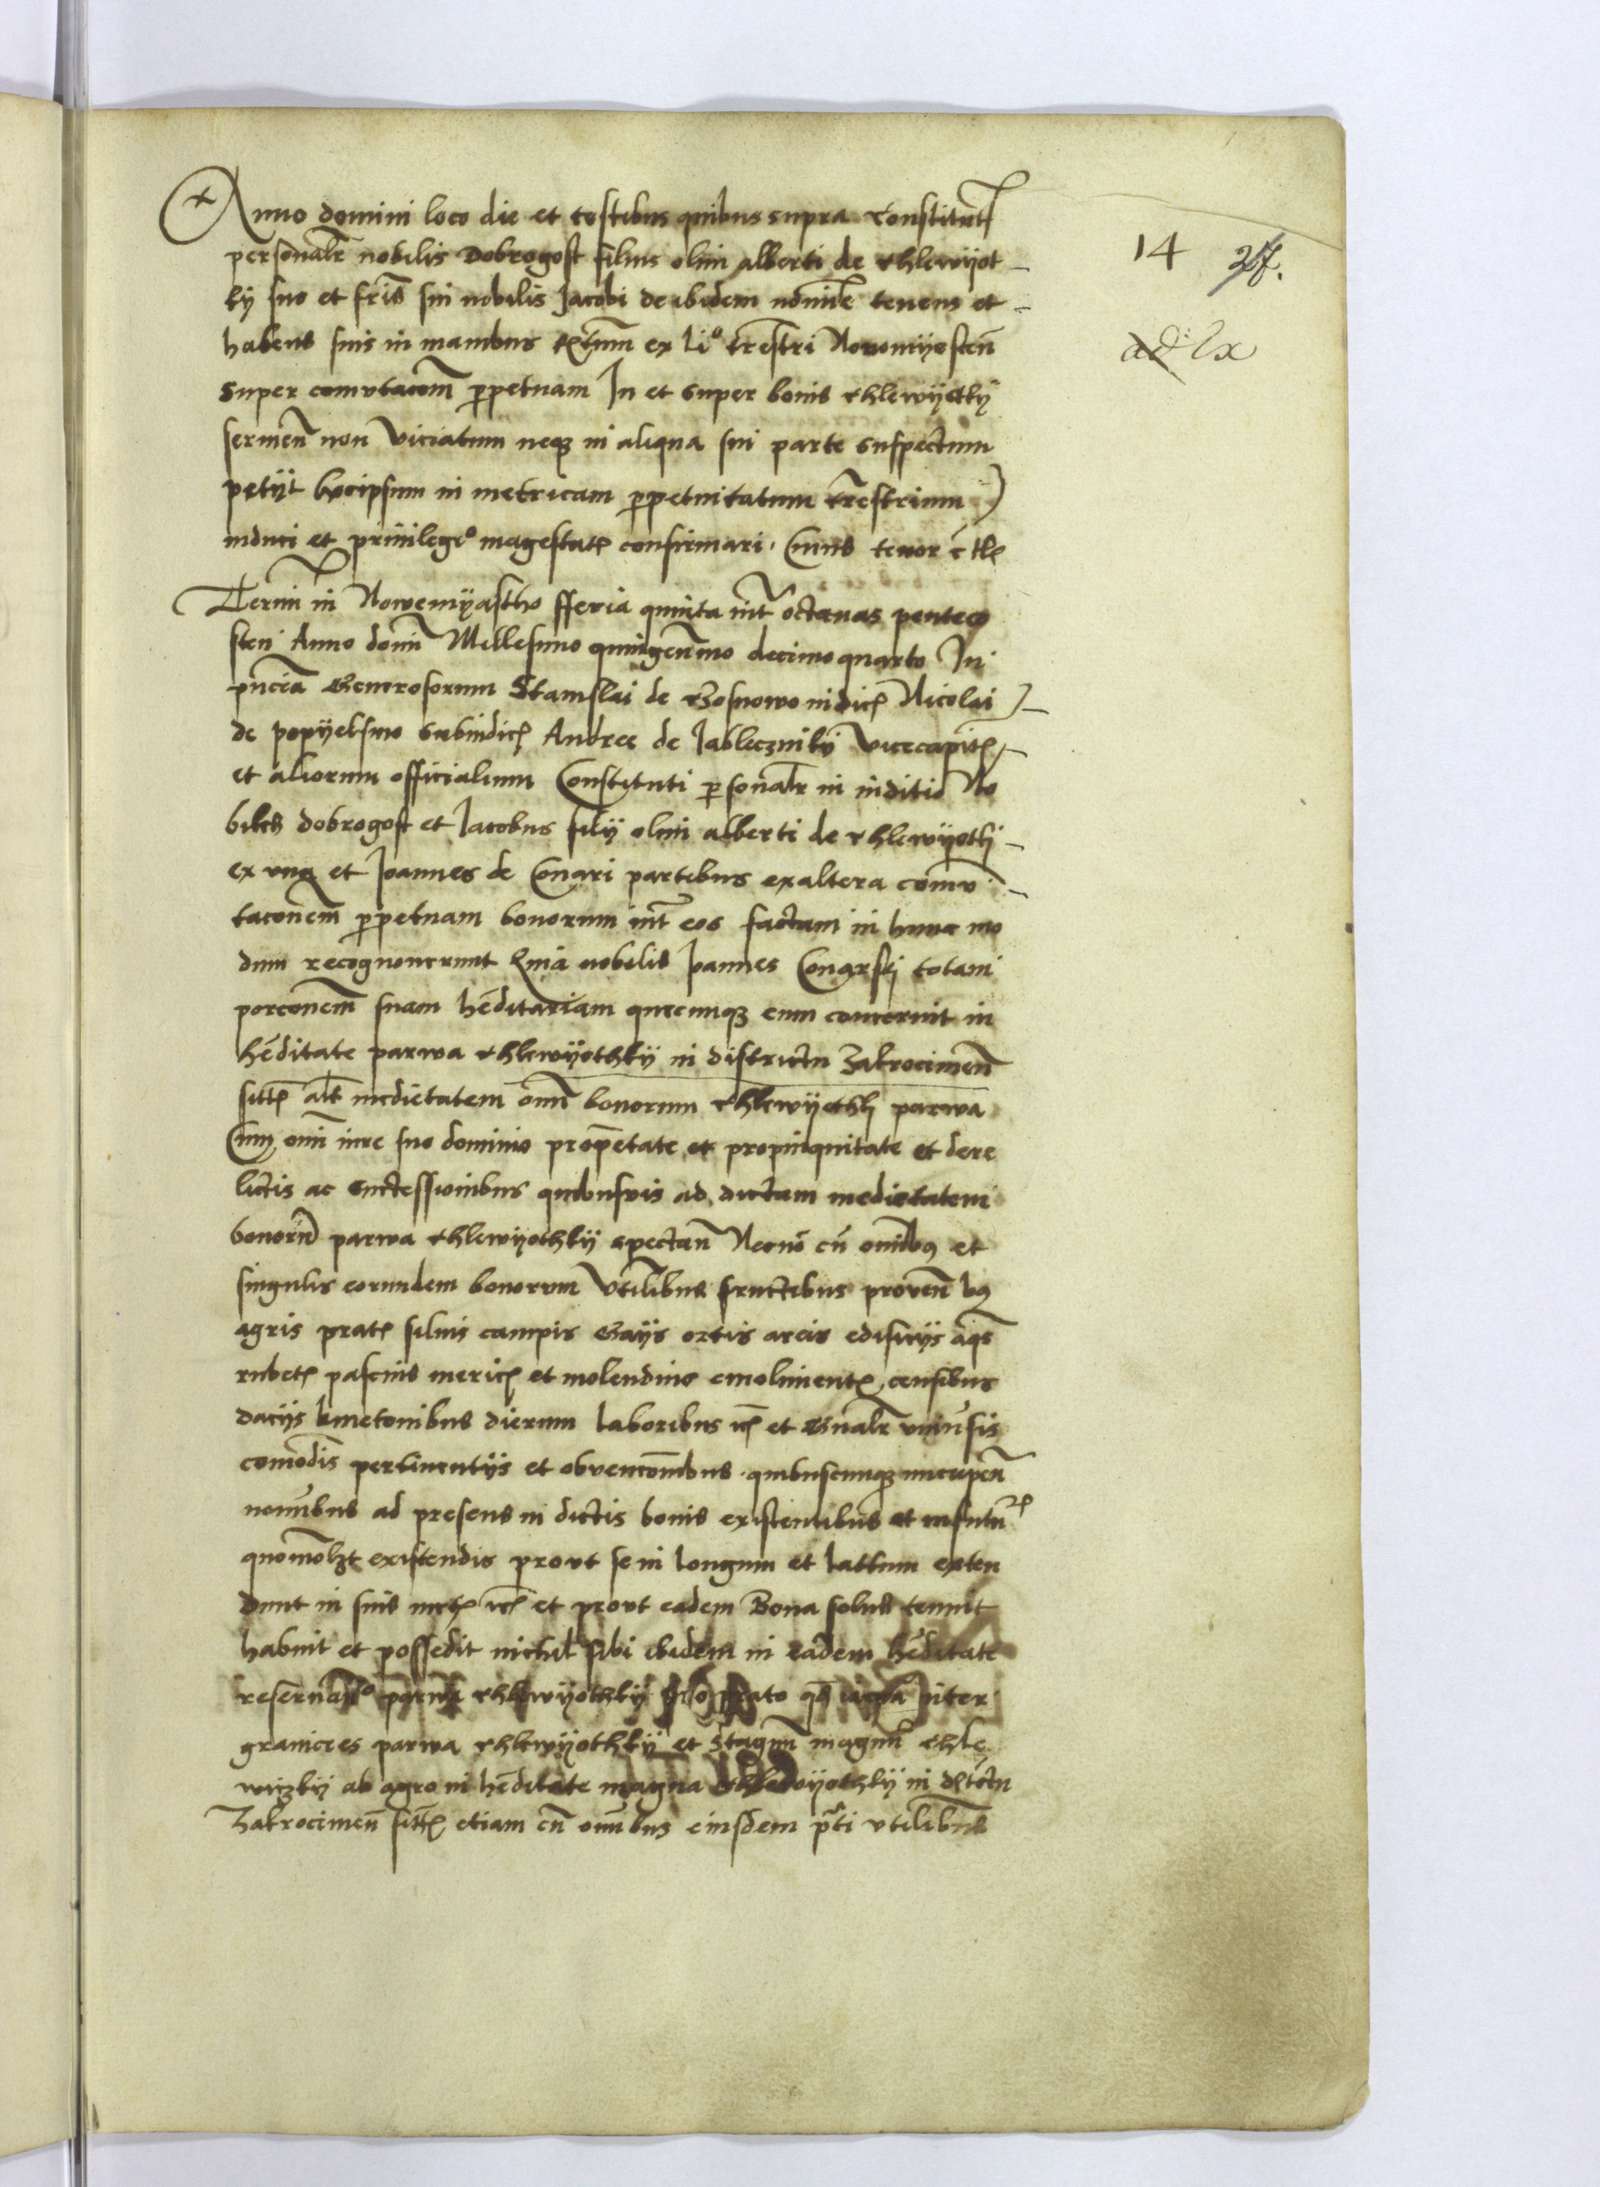 Anno domini loco die et testibus quibus supra Constitut
personalr nobilis Dobrogost filius olim alberti de Chlewyot
ky suo et fris sui nobilis Jacobi de ibidem nomine tenens et
habens suis in manibus ex li° trestri Novomyesten
super comutacom ppetuam In et super bonis Chlewyotky
sermen non viciatum neq in aliqua sui parte suspectum
petyt ipsum in metricam ppetuitatum trestrium
induci et privilegio magestat confirmari. Cuius tenor e tlis
Termi in Nowemyastho fferia quinta intr octavas penteco
sten Anno domi Millesimo quingenmo decimo quarto In
pncia Generosorum Stanislai de Gosnowo iudic Nicolai
de popyelsino subiudic Andree de Jableczniky vicecapit
et aliorum officialium Constituti psonalr in iuditio No
biles dobrogost et Jacobus filij olim alberti de Chlewyothi
ex una et Joannes de Conari partibus ex altera comu
taconem ppetuam bonorum intr eos factam in hunc mo
dum recognoverunt Quia nobilis Joannes Conarski totam
porconem suam heditariam quecunq eum concernit in
heditate parwa Chlewyothky in districtu Zakrocimen
sitt alt medietatem omi bonorum Chlewyothki parwa
Cum omi iure suo dominio propetate et propinquitate et dere
lictis ac successionibus quibusvis ad dictam medietatem
bonorum parwa Chlewyothky spectan Necno cu omibus et
singulis eorundem bonorum Utilibus fructibus proven bus
agris prat silvis campis Gays ortis areis edificijs aqs
rubet pascuis meric et molendinis emoliment censibus
dacijs kmetonibus dierum laboribus et Gnalr univsis
comodis pertinentijs et obvenconibus quibuscunq nucupen
novibus ad presens in dictis bonis existentibus et infutu
quomolzt existendis prout se in longum et lattum exten
dunt in suis et prout eadem Bona solus tenuit
habuit et possedit nichil sibi ibidem in eadem heditate
reservando parwa Chlewyothky prato inter
granicies parwa Chlewyothky et Stagnu magnu Chle
wiczky ab agro in heditate magna Chlewyothky in
Zakrocimen sitt etiam cu omibus eiusdem pti utilibus
14 27.
ad lx